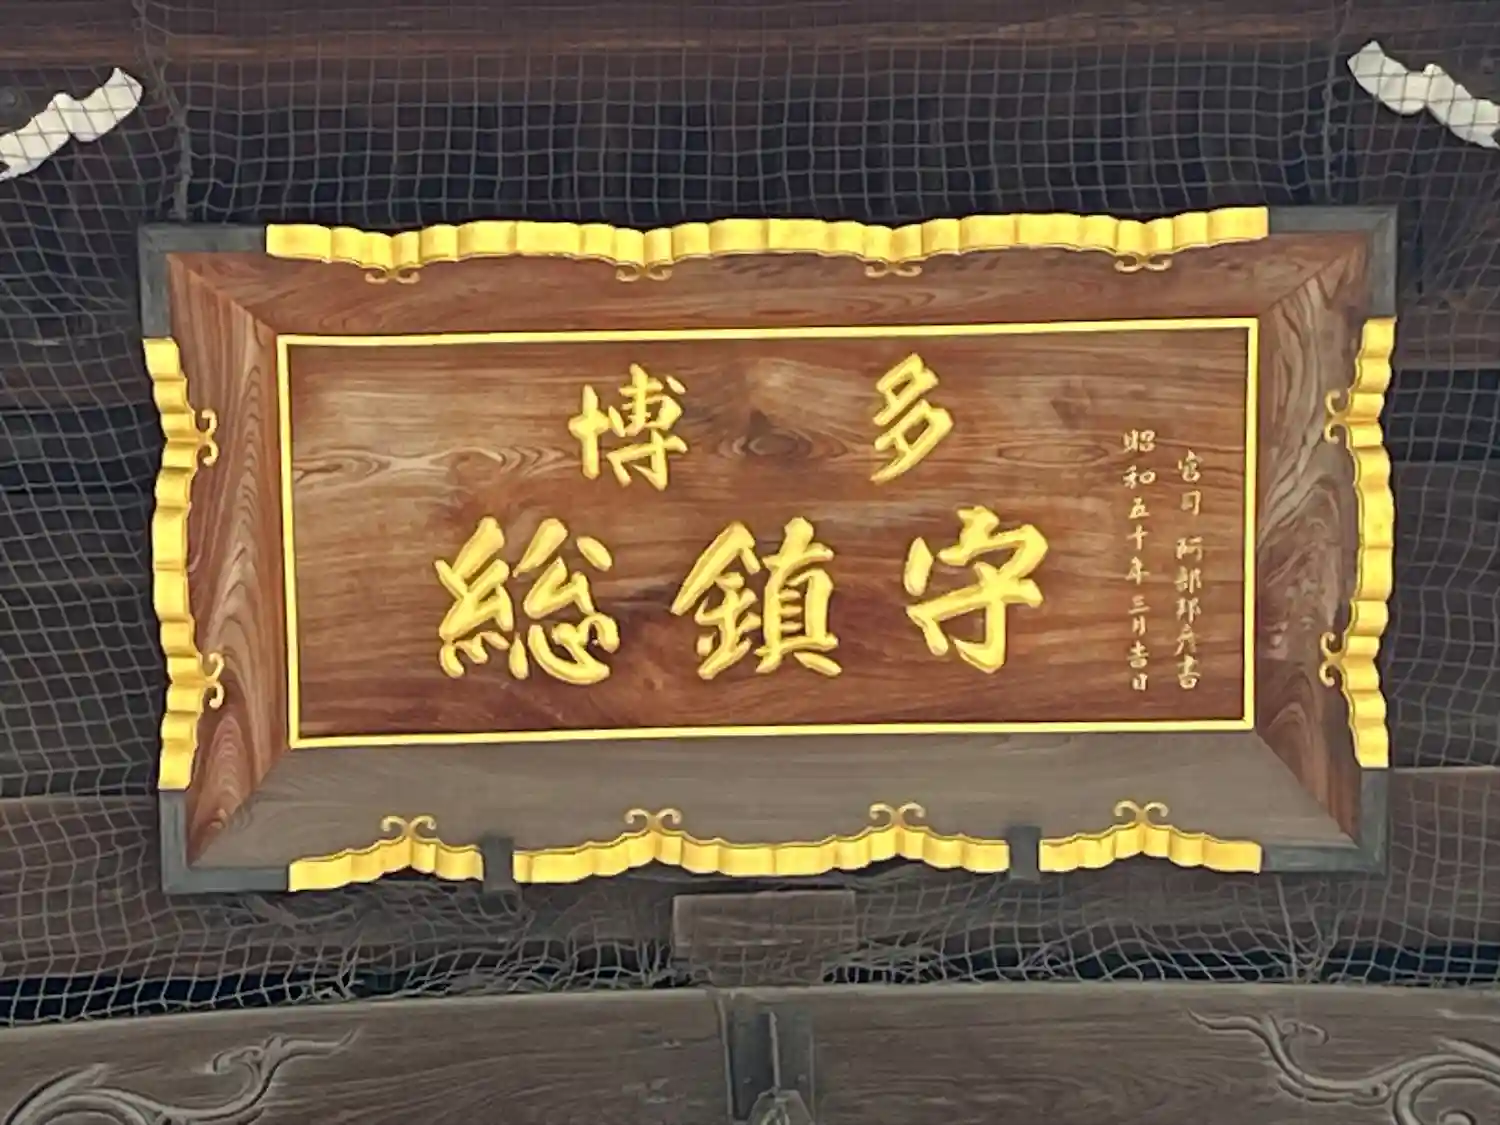 博多
総鎮守
宮司 阿部邦彦書
昭和五十年三月吉日